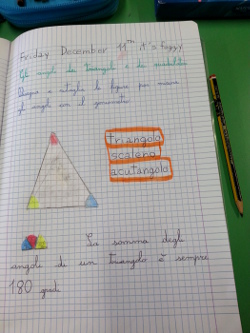 Friday December 11th it's foggy
Gli angoli del triangolo e la
Disegno e ritaglio la figura per
gli angoli con il goniometro
triangolo
scaleno
acutangolo
La somma degli
angoli di un triangolo è sempre
180 gradi